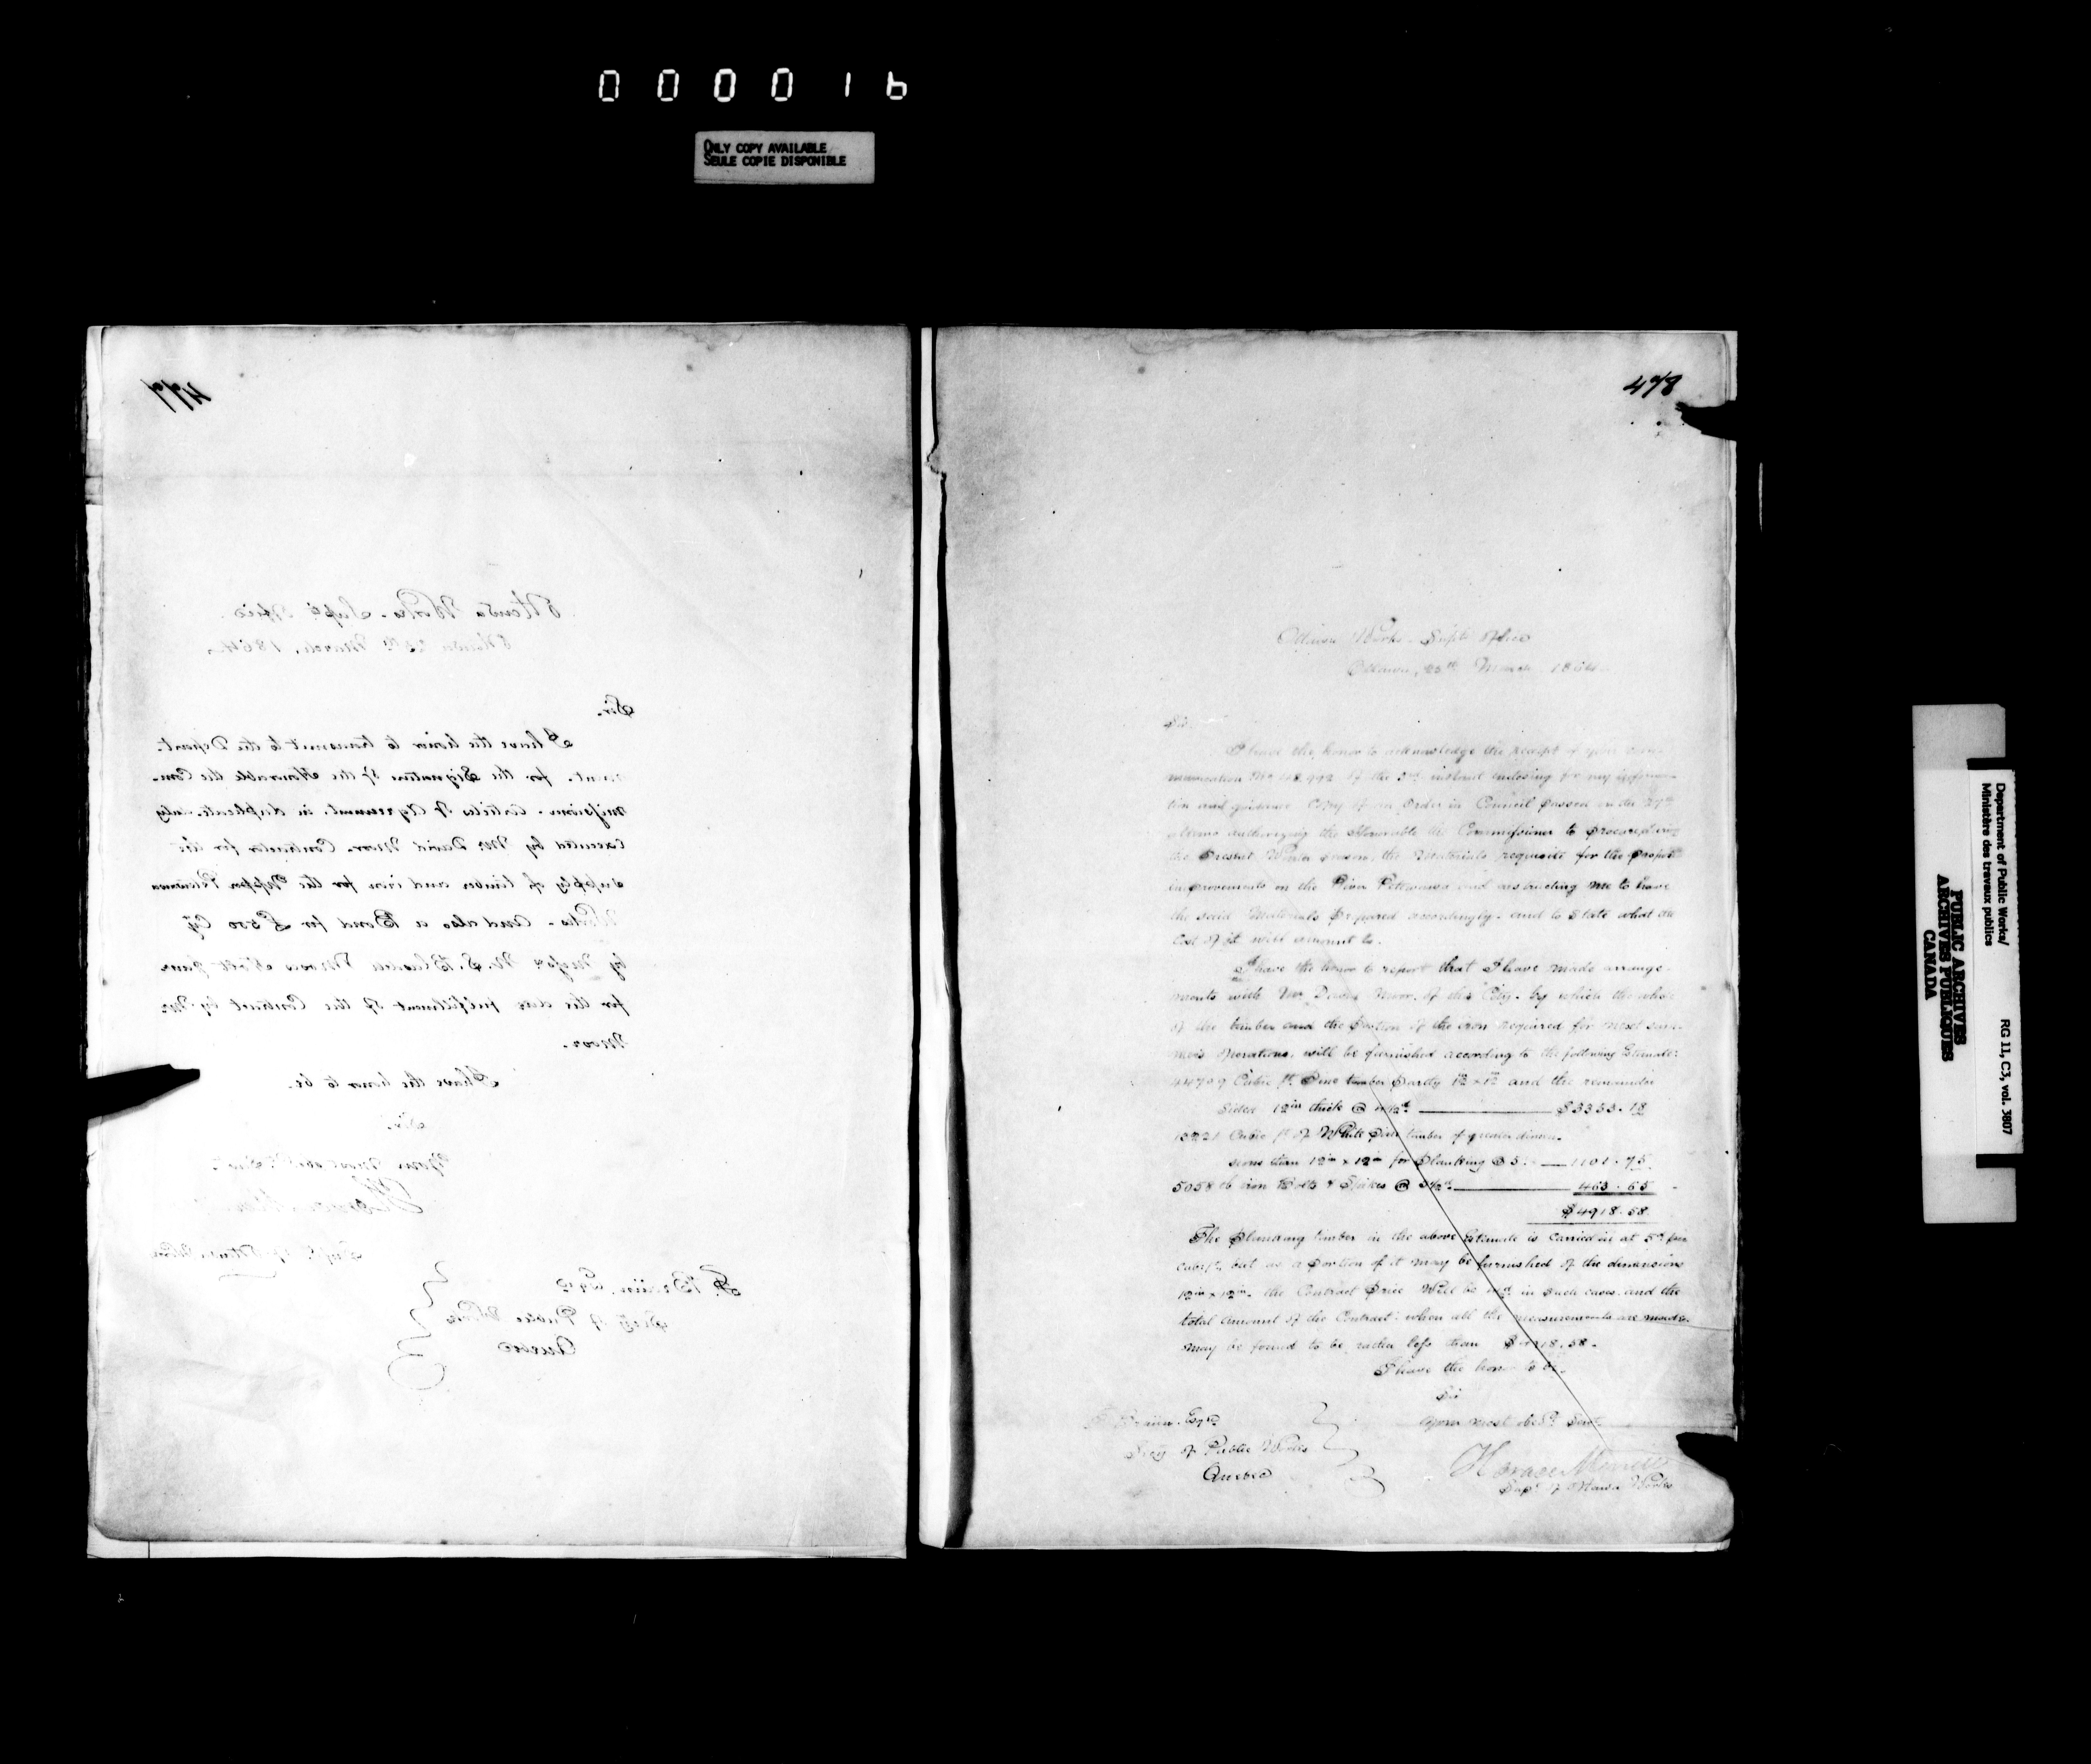 000016
ONLY COPY AVAILABLE
SEULE COPIE DISPONIBLE
477
Ottawa Works - Supts Office.
Ottawa March, 1864.
Sir.
I have the honor to transmit to the Depart-
ment. for the Signature of the Honorable the Com-
missioner - Articles of Agreement. in duplicate. duly
executed by Mr David Moor. Contractor for the
supply of timber and iron for the Upper Petewawa
Works - And also a Bond for £500 Cy
by Messrs M. S. Moore
for the due fulfillment of the Contract by Mr
Moor.
I have the honor to be.
Sir.
Your most obt Servt
Horace Merrill
Supt. of Ottawa Works
F. Braün, Esqre
Secy of Public Works
Quebec
478
Ottawa Works - Supts Office
Ottawa, March 1864
Sir.
I have the honor to acknowledge the receipt of your com-
munication No of the 3rd instant enclosing for my informa-
tion and guidance Copy of an Order in Council passed on the
ultimo authorizing the Honorable the Commissioner to procure during
the Present Winter Season, the Materials requisite for the proposed
improvements on the River Petewawa and instructing me to have
the said Materials prepared accordingly - and to State what the
Cost of it will amount to.
I have the honor to report that I have made arrange-
ments with Mr David Moor. of this City - by which the whole
of the timber and the portion of the iron required for next sum-
mers operations, will be furnished according to the following Estimate:
44709 Cubic ft. Pine timber partly 12 x 12 and the remainder
Sided 12in thick @ 4½d. $3353.18
13221 Cubic ft of White Pine timber of greater dimen-
sions than 12in x 12in for Planking @ 5d. 1101.75
5058 lb iron Bolts & Spikes @ 5½d. 463.65
$4918.58
The Planking timber in the above Estimate is Carried in at 5d. per
Cubic ft. but as a portion of it may be furnished of the dimensions
12in x 12in. the Contract Price Will be in such cases. and the
total Amount of the Contract: when all the measurements are made.
may be found to be rather less than $4918.58.
I have the honor to be.
Sir
Your most obdt Servt.
Horace Merrill
Supt of Ottawa Works
F. Braün. Esqre
Secy of Public Works
Quebec
Department of Public Works/
Ministère des travaux publics
RG 11, C3, vol. 3807
PUBLIC ARCHIVES
ARCHIVES PUBLIQUES
CANADA